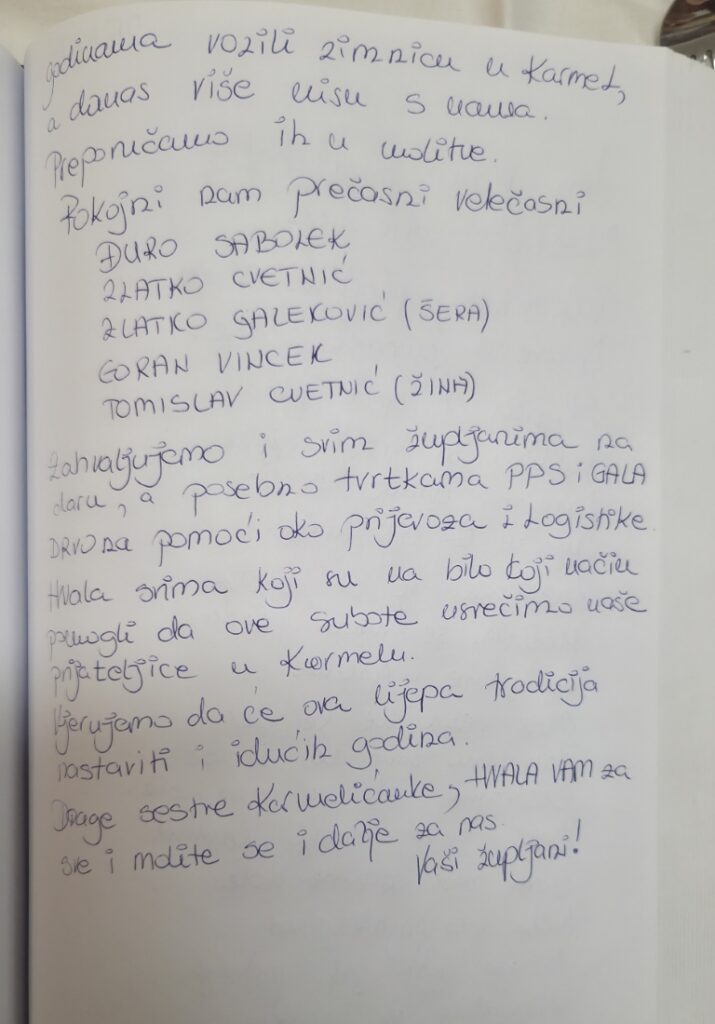 godinama vozili zimnicu u Karmel,
a danas više nisu s nama.
Preporučamo ih u molitve.
Pokojni nam prečasni velečasni
ĐURO SABOLEK
ZLATKO CVETNIĆ
ZLATKO GALEKOVIĆ (ŠERA)
GORAN VINCEK
TOMISLAV CVETNIĆ (ŽINA)
Zahvaljujemo i svim župljanima na
daru, a posebno tvrtkama PPS i GALA
DRVO na pomoći oko prijevoza i logistike.
Hvala svima koji su na bilo koji način
pomogli da ove subote usrećimo naše
prijateljice u Karmelu.
Vjerujemo da će ova lijepa tradicija
nastaviti i idućih godina.
Drage sestre Karmelićanke, HVALA VAM za
sve i molite se i dalje za nas.
Vaši župljani!